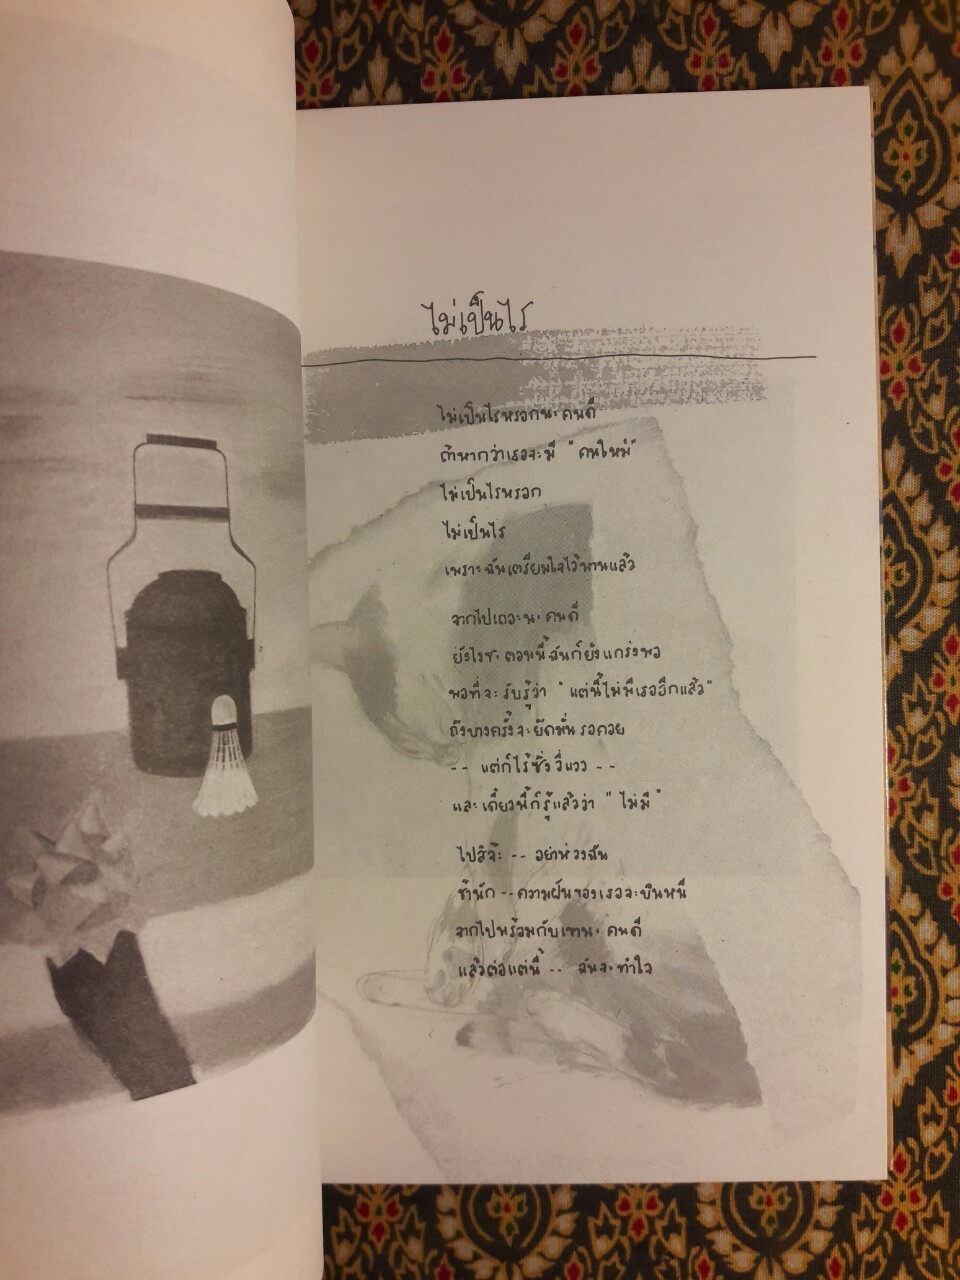 ไม่เป็นไร
ไม่เป็นไรหรอกนะคนดี
ถ้าหากว่าเธอจะมี "คนใหม่"
ไม่เป็นไรหรอก
ไม่เป็นไร
เพราะฉันเตรียมใจไว้นานแล้ว
จากไปเถอะนะคนดี
ยังไงซะตอนนี้ฉันก็ยังแกร่งพอ
พอที่จะรับรู้ว่า "แต่นี้ไม่มีเธออีกแล้ว"
ถึงบางครั้งจะยึดมั่นรอคอย
-- แต่ก็ไร้ซึ่งวี่แวว --
และเดี๋ยวนี้ก็รู้แล้วว่า "ไม่มี"
ไปสิจ๊ะ -- อย่าห่วงฉัน
ช้านัก -- ความฝันของเธอจะบินหนี
จากไปพร้อมกับเขานะคนดี
แล้วต่อแต่นี้ -- ฉันจะทำใจ